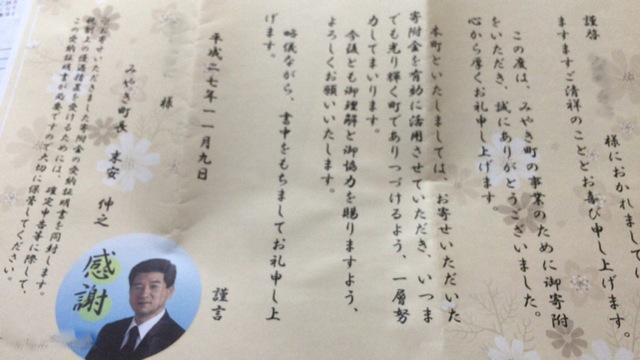 謹啓
様におかれまして
ますますご清祥のこととお喜び申し上げます。
この度は、みやき町の事業のために御寄附
をいただき、誠にありがとうございました。
心から厚くお礼申し上げます。
本町といたしましては、お寄せいただいた
寄附金を有効に活用させていただき、いつま
でも光り輝く町でありつづけるよう、一層努
力してまいります。
今後とも御理解と御協力を賜りますよう、
よろしくお願いいたします。
略儀ながら、書中をもちましてお礼申し上
げます。
謹言
平成二七年一一月九日
様
みやき町長 末安 伸之
お寄せいただきました寄附金の受納証明書を同封します。
税制上の優遇措置を受けるためには、確定申告等に際して、
この受納証明書が必要ですので大切に保管してください。
感謝